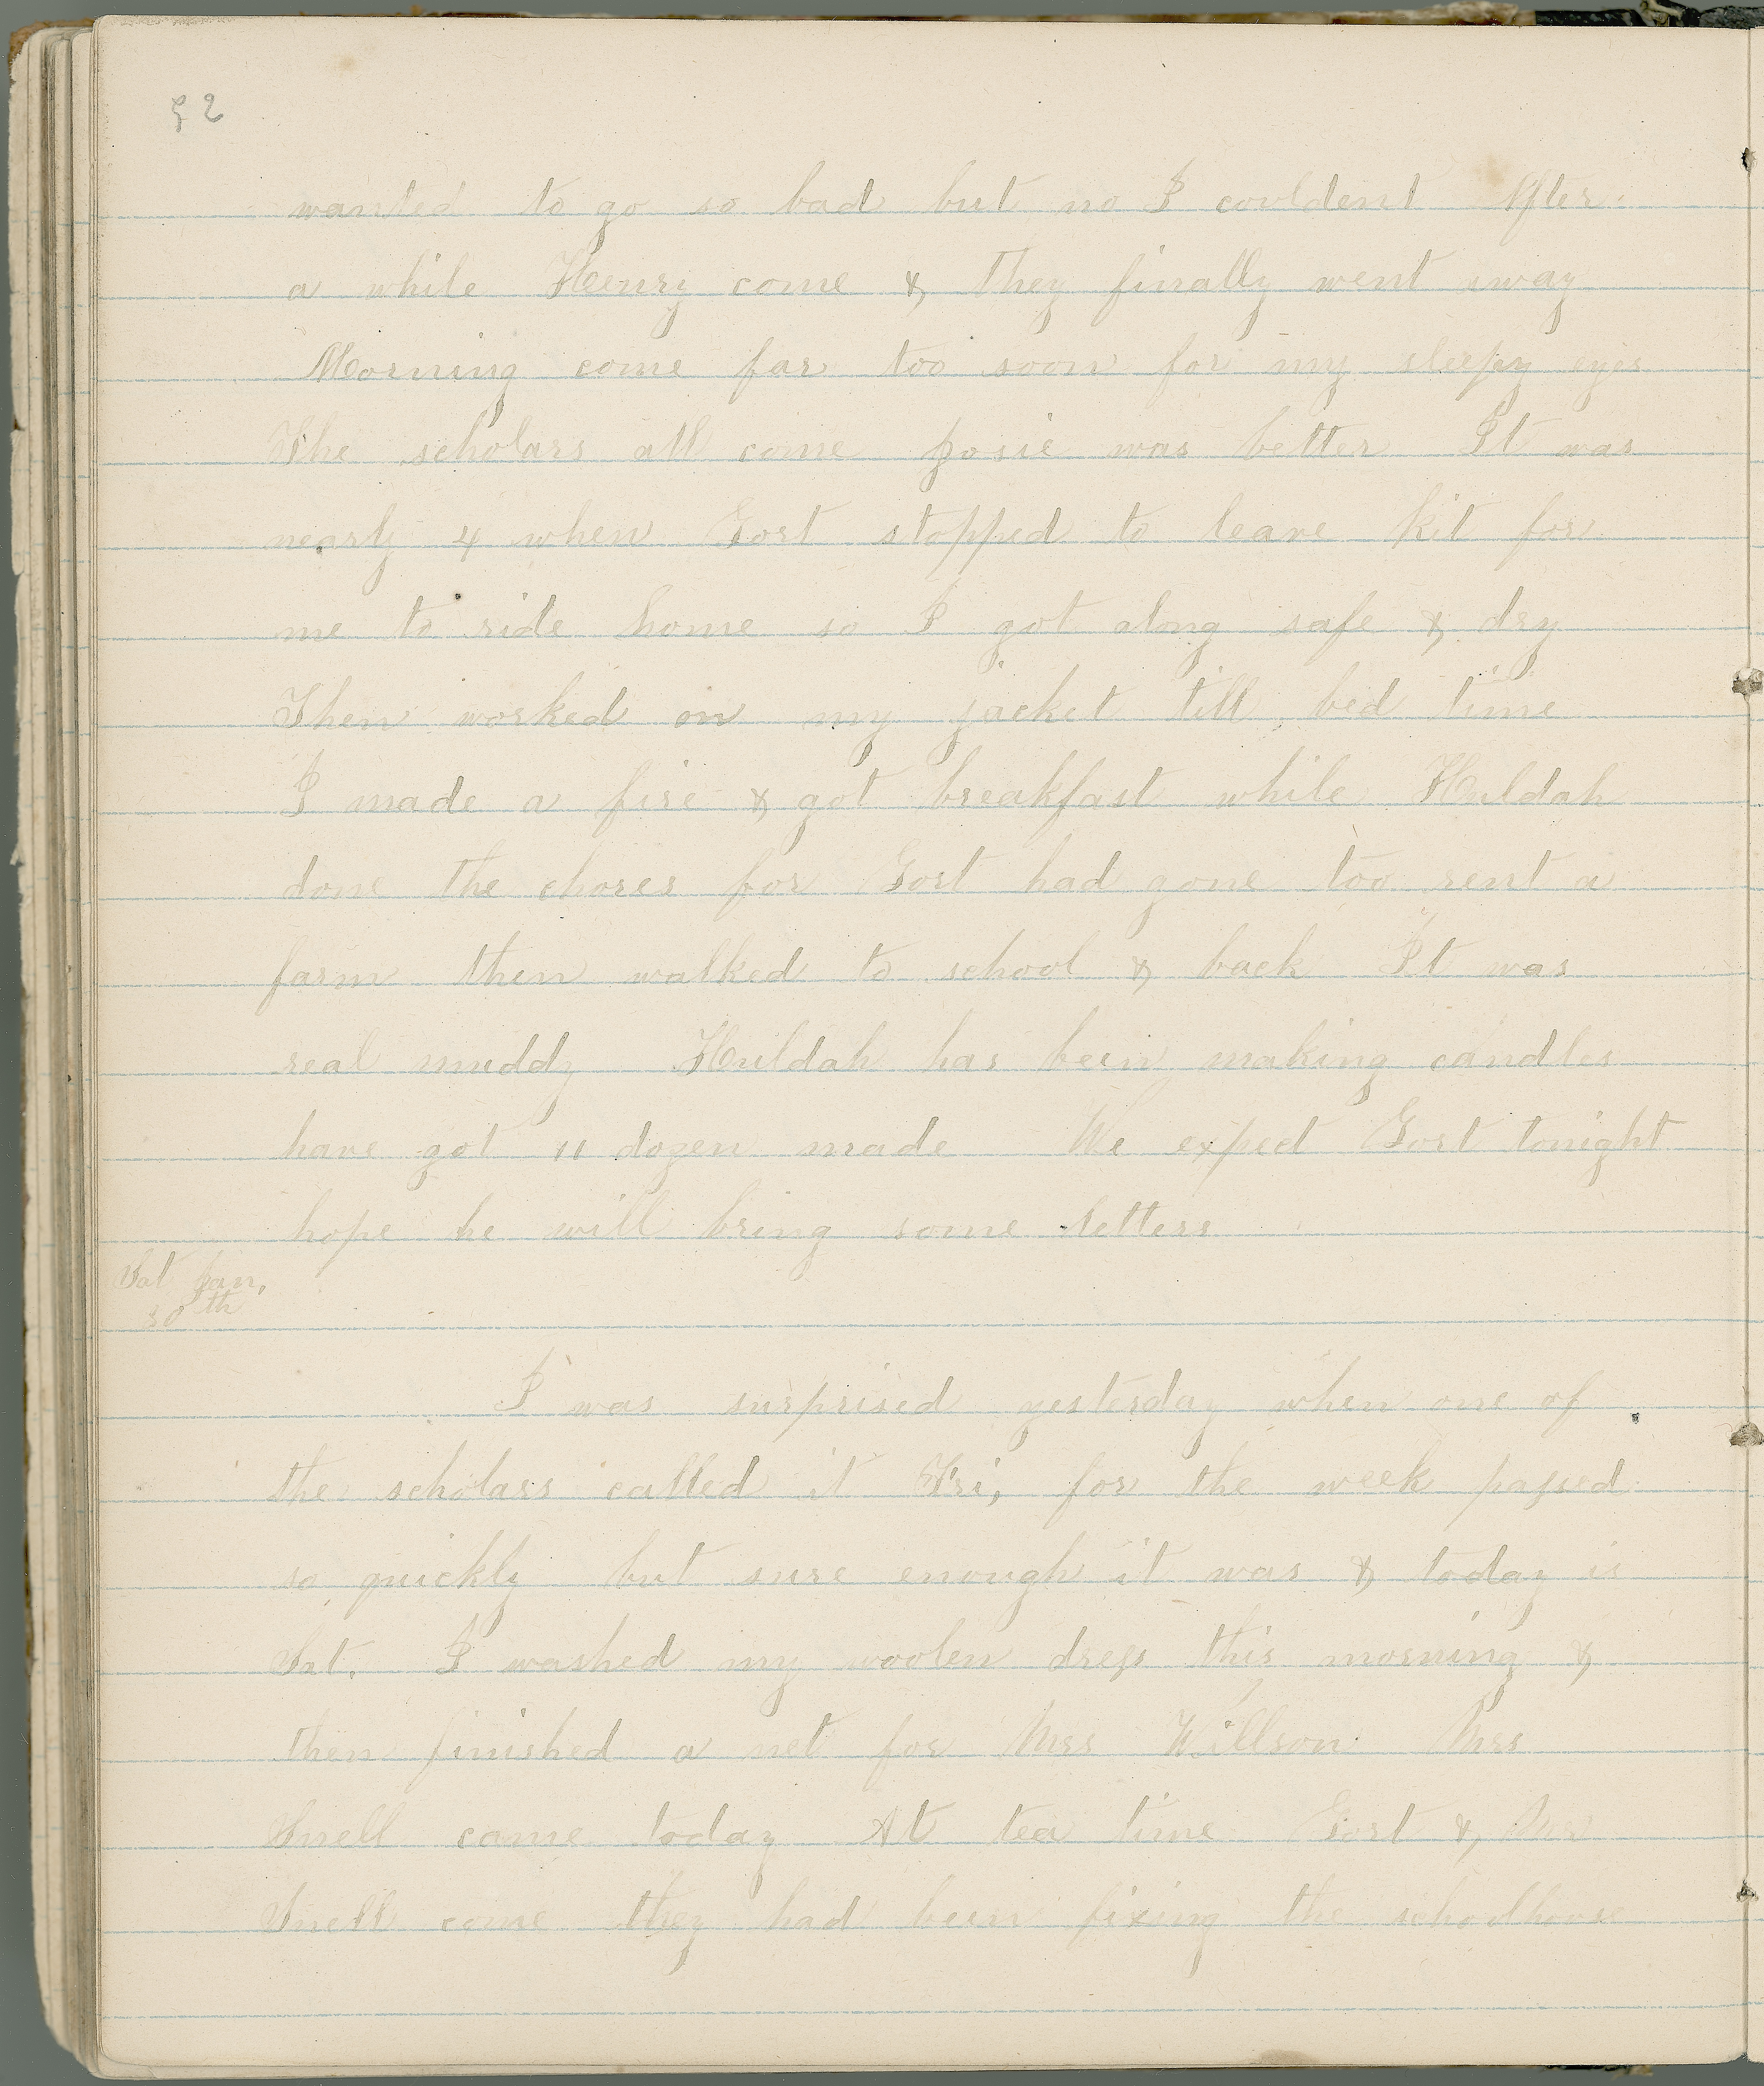 52
wanted to go so bad but no I couldent After
a while Henry come & they finally went away
Morning come far too soon for my sleepy eyes
The scholars all come Josie was better It was
nearly 4 when Gort stopped to leave Kit for
me to ride home so I got along safe & dry
Then worked on my jacket till bed time
I made a fire & got breakfast while Huldah
done the chores for Gort had gone too rent a
farm then walked to school & back It was
real muddy Huldah has been making candles
have got 11 dozen made We expect Gort tonight
hope he will bring some letters
Sat Jan,
30th
I was surprised yesterday when one of
the scholars called it Fri, for the week passed
so quickly but sure enough it was & today is
Sat. I washed my woolen dress this morning &
then finished a net for Mrs Willson Mrs
Snell came today At tea time Gort &
Snell come they had been fixing the schoolhouse